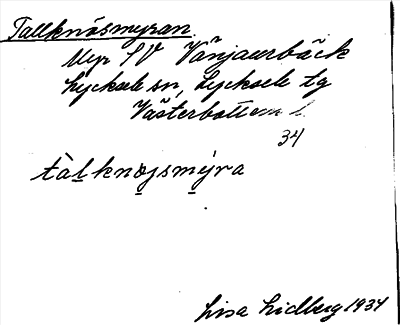 Tallknösmyran.
Myr SV Vänjaurbäck
Lycksele sn, Lycksele tg
Västerbottens l.
34
tàl̠knøjsmýra
Lisa Lidberg 1934